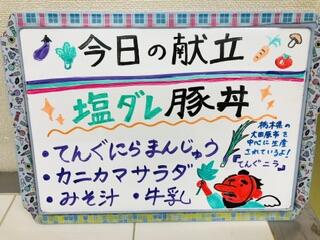 今日の献立
塩ダレ豚丼
・てんぐにらまんじゅう
・カニカマサラダ
・みそ汁 ・牛乳
栃木県の
大田原市を
中心に生産
されているよ!
『てんぐニラ』